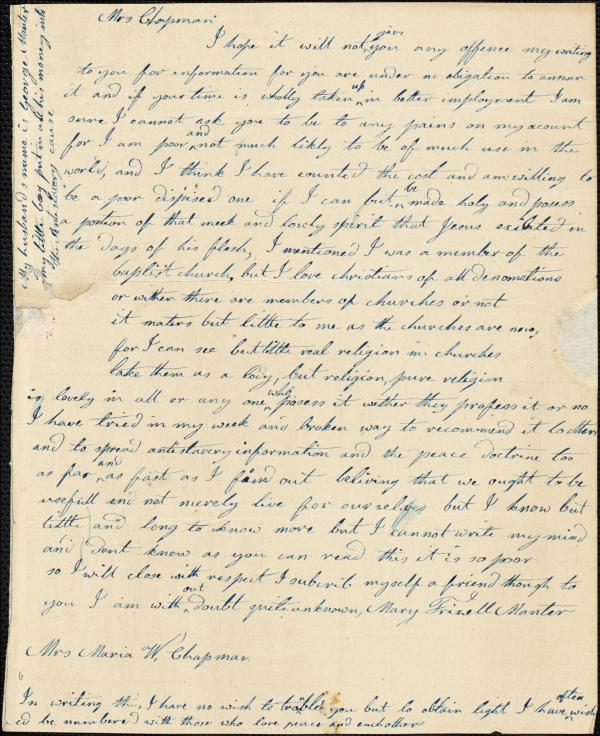 Mrs Chapman
I hope it will not give you any offence my writing
to you for information for you are under no obligation to answer
it and if your time is wholly taken up in better imployment I am
sure I cannot ask you to be to any pains on my account
for I am poor and not much likly to be of much use in the
world, and I think I have counted the cost and am willing to
be a poor dispised one if I can but be made holy and posess
a portion of that meek and lowly spirit that Jesus exibited in
the days of his flesh, I mentioned I was a member of the
baptist church, but I love christians of all denomations
or wither there are members of churches or not
it maters but little to me as the churches are now,
for I can see but little real religion in churches
take them as a body, but religion, pure religion
is lovely in all or any one who posess it wether they profess it or no
I have tried in my week and broken way to recommend it to others
and to spread antislavery information and the peace doctrine too
as far and as fast as I find out beliving that we ought to be
usefull and not merely live for ourselves but I know but
little and long to know more but I cannot write my mind
and dont know as you can read this it is so poor
so I will close with respect I subcrib myself a friend though to
you I am with out doubt quite unknown, Mary Frizell Manter
Mrs Maria W, Chapman
In writing this I have no wish to trouble you but to obtain light I have often wish
ed be numbered with those who love peace and eachother
My husband s name is George Manter
my little boy put in all his money into
the Anti slavery cause
6